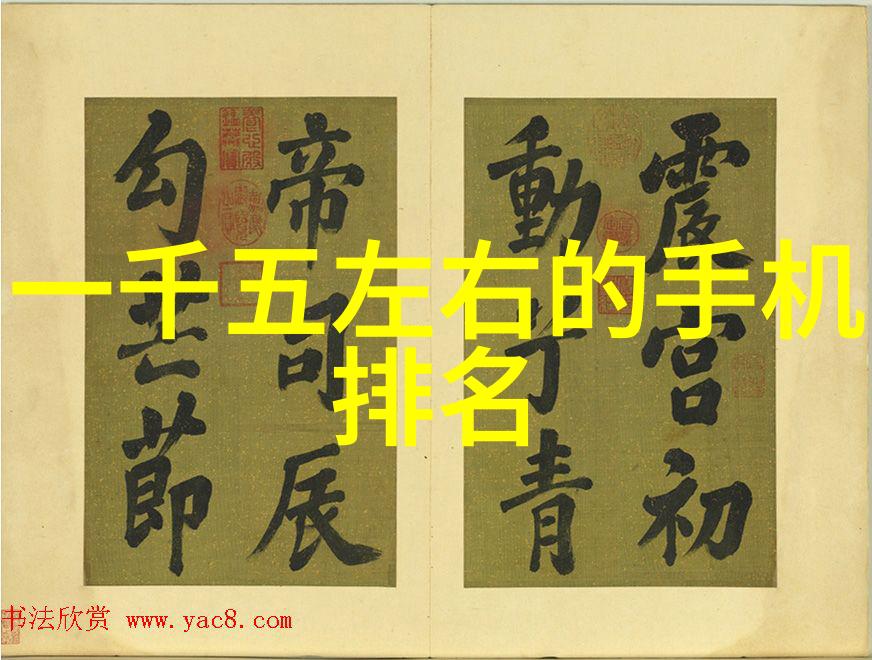 一千五左右的手机
排名
震宫初
動青
帝司辰
勾芒節
书法欣赏 www.yac8.com